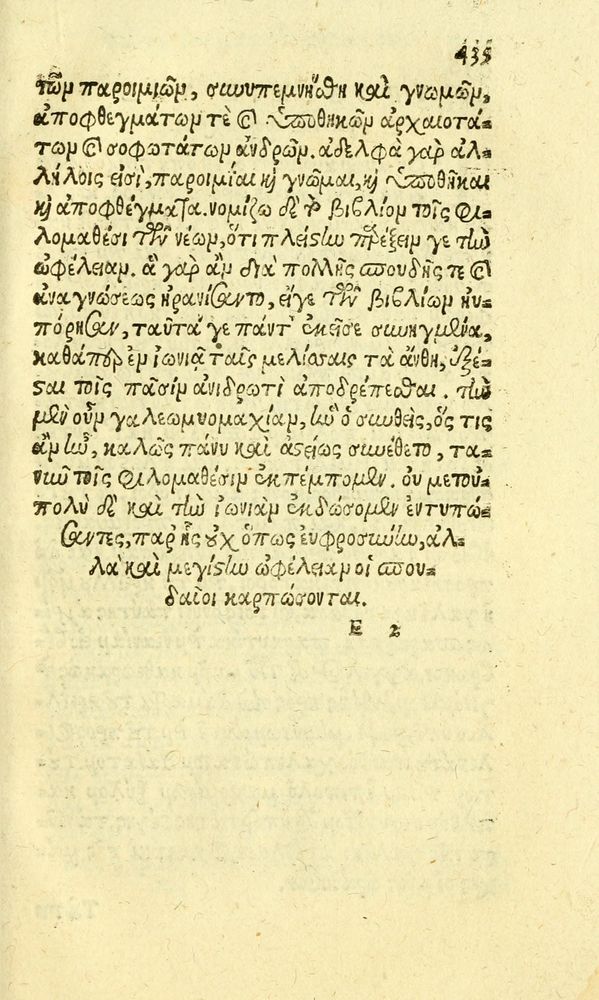 435
τῶν παροιμιῶν, συνυπεμνήσθη καὶ γνωμῶν,
ἀποφθεγμάτων τὲ καὶ ὑποθηκῶν ἀρχαιοτά-
των καὶ σοφωτάτων ἀνδρῶν. ἀδελφὰ γὰρ ἀλ-
λήλοις εἰσὶ, παροιμίαι καὶ γνῶμαι, καὶ ὑποθῆκαι
καὶ ἀποφθέγματα. νομίζω δὲ τὸ βιβλίον τοῖς φι-
λομαθέσι τῶν νέων, ὅτι πλείστην παρέξειν γε τὴν
ὠφέλειαν. ἃ γὰρ ἂν διὰ πολλῆς σπουδῆς τε καὶ
ἀναγνώσεως ἠρανίσαντο, εἴγε τῶν βιβλίων ηὐ-
πόρησαν, ταῦτά γε πάντ' ἐκεῖσε συνηγμένα,
καθάπερ ἐν ἰωνιᾷ ταῖς μελίσσαις τὰ ἄνθη, ἐξέ-
σται τοῖς πᾶσιν ἀνιδρωτὶ ἀποδρέπεσθαι. τὴν
μὲν οὖν γαλεωμυομαχίαν, ἣν ὁ συνθεὶς, ὅς τις
ἂν ἦν, καλῶς πάνυ καὶ ἀστείως συνέθετο, τα-
νῦν τοῖς φιλομαθέσιν ἐκπέμπομεν. οὐ μετοῦ
πολὺ δὲ καὶ τὴν ἰωνιὰν ἐκδώσομεν ἐντυπώ-
σαντες, παρ' ἧς οὐχ ὅπως εὐφροσύνην, ἀλ-
λὰ καὶ μεγίστην ὠφέλειαν οἱ σπου-
δαῖοι καρπώσονται.
E 2